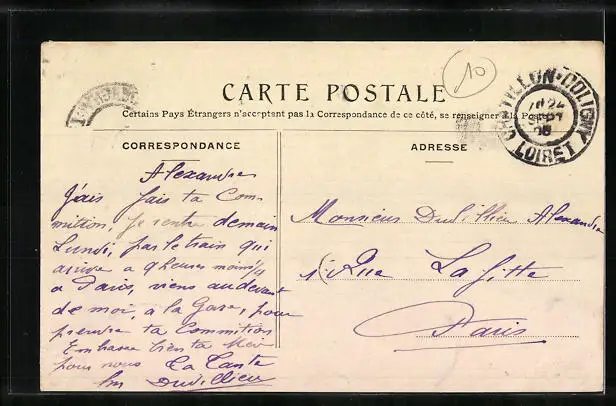 10
CARTE POSTALE
Certains Pays Étrangers n'acceptent pas la Correspondance de ce côté, se renseigner à la Poste
CHATILLON-COLIGNY
24
LOIRET
CORRESPONDANCE
Alexandre
J'ais fais ta Com
mition, je rentre demain
Lundi, par le train qui
arrive a 9 heures moins ¼
a Paris, viens au devant
de moi, a la Gare, pour
prendre ta Commition
Embrasse bien ta
pour nous La Tante
Duvillier
ADRESSE
Monsieur Duvillier Alexandre
Rue Lafitte
Paris